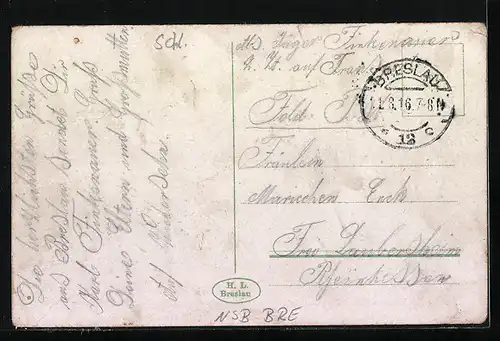 Die herzlichsten Grüße
aus Breslau sendet Dir
Karl Finkenauer Gruß
Deine Eltern und Großmutter
Auf Wiedersehn
Sch.
Abs. Jäger Finkenauer
z. Zt. auf
BRESLAU
8.16.7-8N
* 12 c
Feld
Fräulein
Mariechen
Frei Laubersheim
Rheinhessen
H. L.
Breslau
NSB BRE